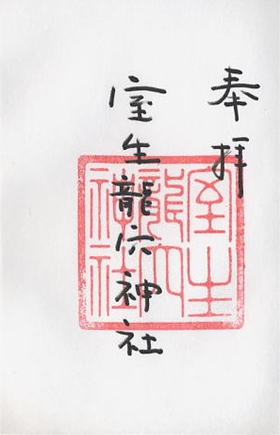 奉拝
室生龍穴神社
室生
龍穴
神社